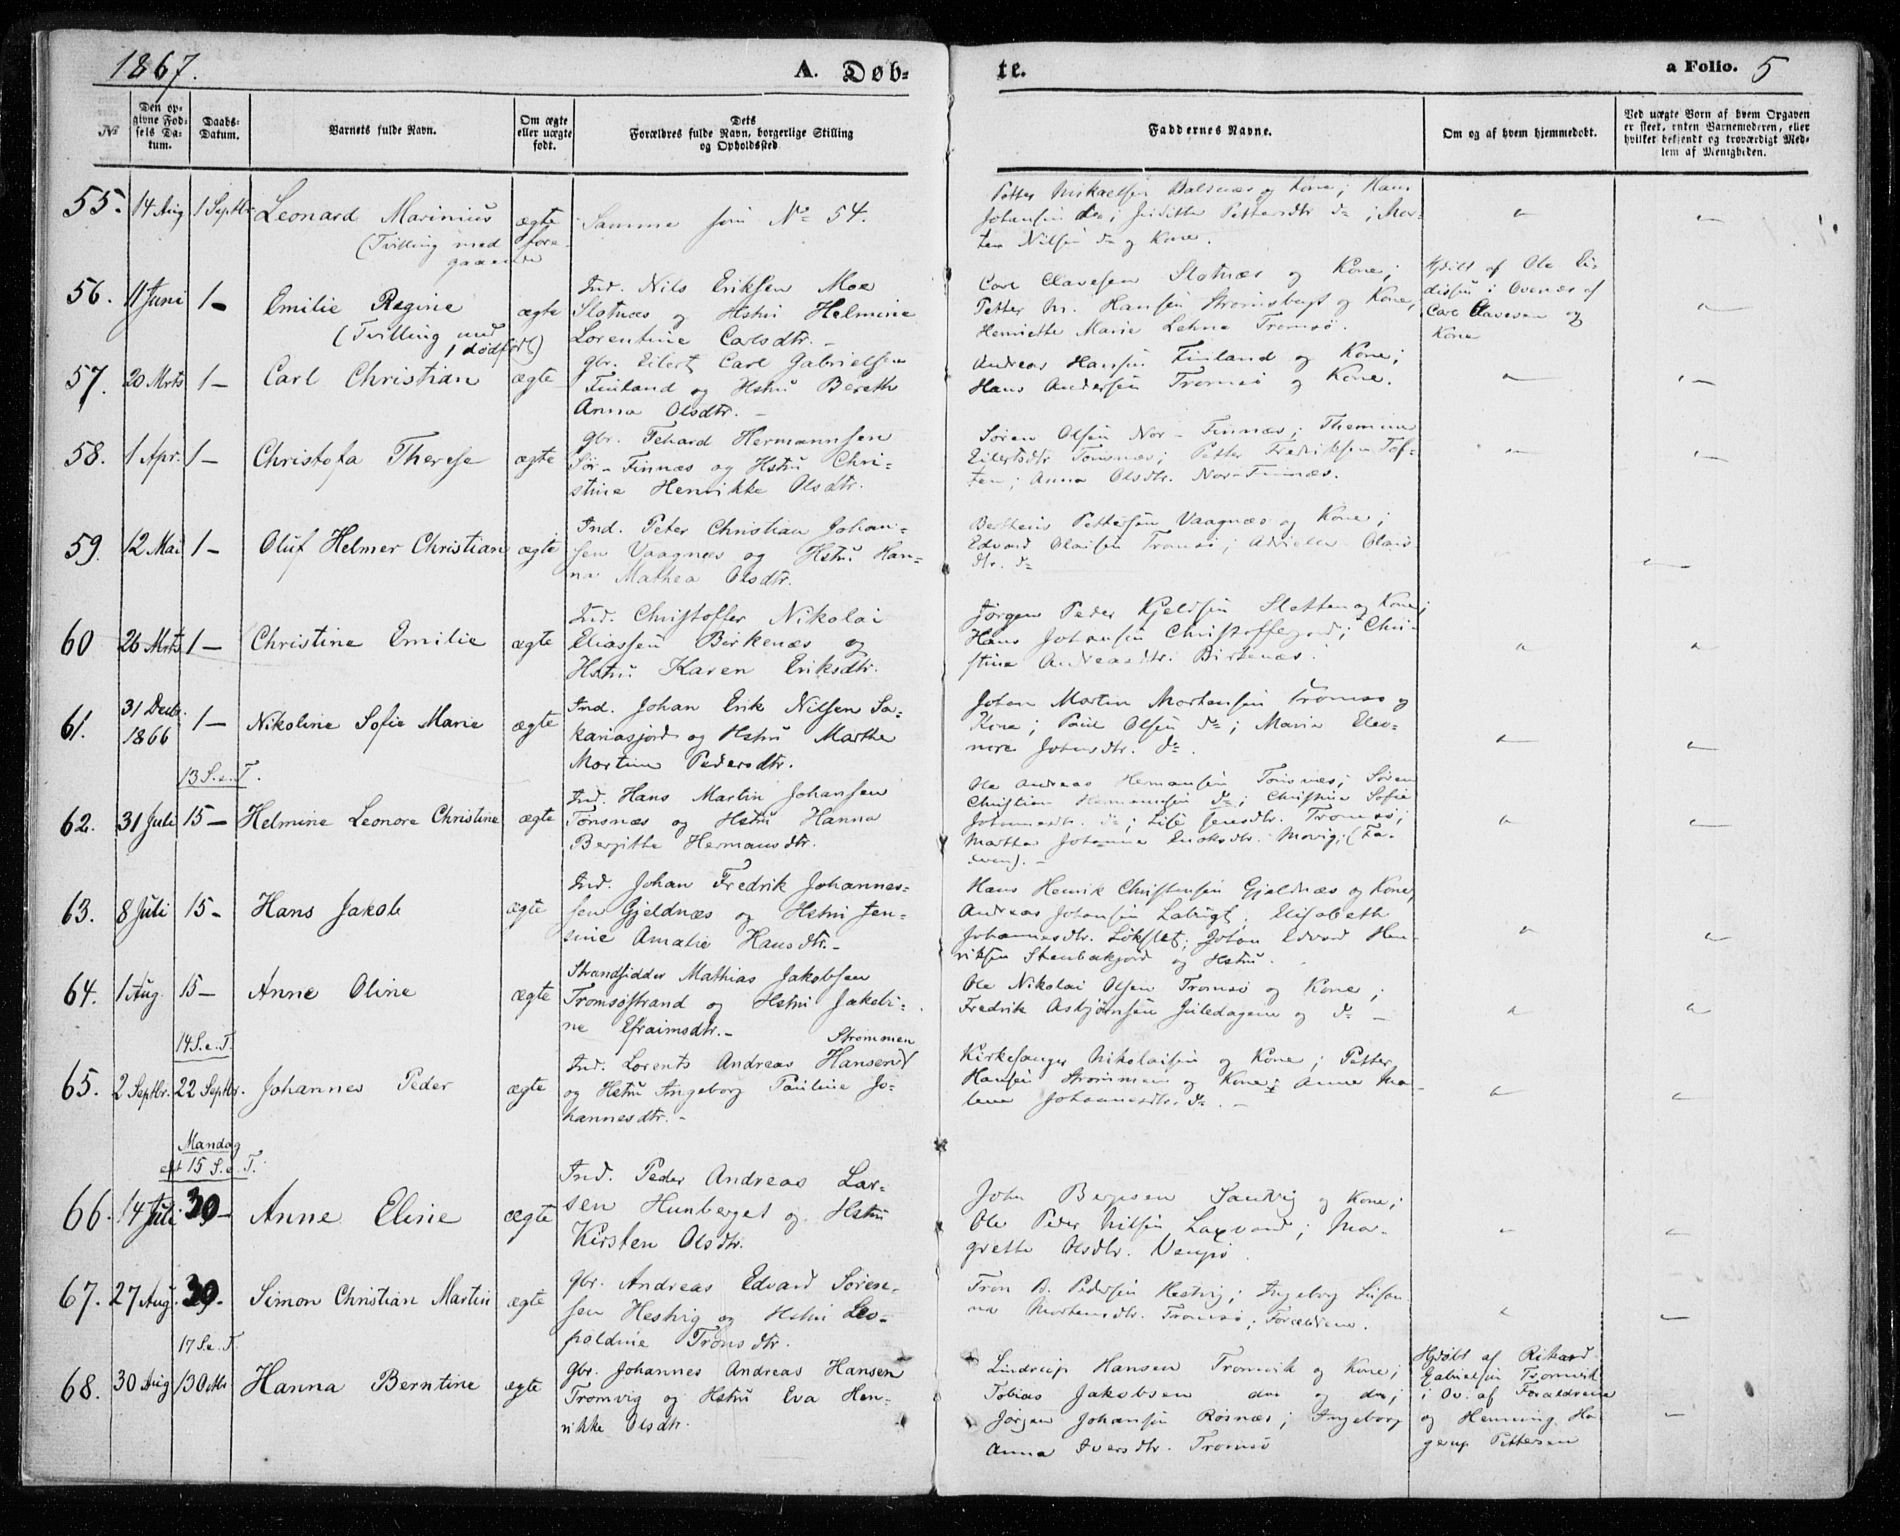 1867.
A. Døb-
te.
a Folio. 5
№
Den op-
givne Fød-
sels Da-
tum.
Daabs-
Datum.
Barnets fulde Navn.
Om ægte
eller uægte
født.
Dets
Forældres fulde Navn, borgerlige Stilling
og Opholdssted.
Faddernes Navne.
Om og af hvem hjemmedøbt.
Ved uægte Born af hvem Opgaven
er skeet, enten Barnemoderen, eller
hvilket bekjendt og troværdigt Med-
lem af Menigheden.
55. 14 Aug 1 Septbr. Leonard Marinius ægte Samme som No 54.
(Tvilling med fore-
gaaende
Petter Mikaelsen Balsnæs og Kone; Hans
Johansen do; Judithe Pettersdtr do; Mor-
ten Nilsen do og Kone.
56. 11 Juni 1 - Emilie Regine ægte
(Tvilling med
1 dødfødt)
Ind. Nils Eriksen Moe
Slotnæs og Hstru Helmine
Lorentine Carlsdtr. -
Carl Clavesen Slotnæs og Kone;
Petter M. Hansen Strømsbugt og Kone;
Henriette Marie Lehne Tromsø.
Hjdøbt af Ole
i Ovenær af
Carl Clavesen og
Kone
57. 20 Mrts 1 - Carl Christian ægte
gbr. Eilert Carl Gabrielsen
Finland og Hstru Bereth
Anna Olsdtr. -
Andreas Hansen Finland og Kone;
Hans Andersen Tromsø og Kone.
58. 1 Apr. 1 - Christofa Therese ægte
gbr. Tehard Hermannsen
Sør-Finnæs og Hstru Chri-
stine Henrikke Olsdtr.
Søren Olsen Nor-Finnæs;
Eilertsdtr Tonsnæs; Petter Fredriksen Tof-
ten; Anna Olsdtr. Nor-Finnæs.
59. 12 Mai 1 - Oluf Helmer Christian ægte
Ind. Peter Christian Johan-
sen Vaagnæs og Hstru Han-
na Mathea Olsdtr.
Pettersen Vaagnæs og Kone;
Edvard Olaisen Tromsø; Olais
dtr. do
60 26 Mrts 1 - Christine Emilie ægte
Ind. Christoffer Nikolai
Eliassen Birkenæs og
Hstru Karen Eriksdtr.
Jørgen Peder Kjeldsen Sletten og Kone;
Hans Johansen Christoffejord; Chri-
stine Andreasdtr. Birkenæs.
61. 31 Decbr.
1866 1 - Nikoline Sofie Marie ægte
Ind. Johan Erik Nilsen Sa-
kariasjord og Hstru Marthe
Martine Pedersdtr.
Johan Martin Mortensen Tromsø og
Kone; Paul Olsen do; Maria Eleo-
nore Johansdtr. do.
13 S. e. T.
62. 31 Juli 15 - Helmine Leonore Christine ægte
Ind. Hans Martin Johansen
Tønsnæs og Hstru Hanna
Bergitte Hermansdtr.
Ole Andreas Hermansen Tonsnæs; Søren
Christian Hermansen do; Christine Sofie
Johannesdtr. do; Lise Jensdtr. Tromsø;
Martha Johanna Enoksdtr. Movig; (Fa-
deren). -
63. 8 Juli 15 - Hans Jakob ægte
Ind. Johan Fredrik Johannes-
sen Gjeldnæs og Hstru Jen-
sine Amalie Hansdtr. -
Hans Henrik Christensen Gjeldnæs og Kone;
Andreas Johansen Labugt. Elisabeth
Johannesdtr. Løkslet; Johan Edvard Hen-
riksen Stenbakjord og Hstru.
64. 1 Aug. 15 - Anne Oline ægte
Strandsidder Mathias Jakobsen
Tromsøstrand og Hstru Jakobi-
ne Efraimsdtr. -
Ole Nikolai Olsen Tromsø og Kone;
Fredrik Asbjørnsen Juledagene og do -
14 S. e. T.
65. 2 Septbr. 22 Septbr. Johannes Peder ægte
Strømmen
Ind. Lorents Andreas Hansen
og Hstru Ingeborg Pauline Jo-
hannesdtr. -
Kirkesanger Nikolaisen og Kone; Petter
Hansen Strømmen og Kone; Anne Ma-
lene Johannesdtr. do. -
Mandag
eft 15 S. e. T.
66. 14 Juli 30 - Anne Eline ægte
Ind. Peder Andreas Lar-
sen Hunberget og Hstru
Kirsten Olsdtr.
John Bersen Sandvig og Kone;
Ole Peder Nilsen Laxvand; Mar-
grethe Olsdtr. Vengsø.
67. 27 Aug. 30 - Simon Christian Martin ægte
gbr. Andreas Edvard Søren-
sen Hestvig og Hstru Leo-
poldine Trønsdtr.
Tron B. Pedersen Hestvig; Ingeborg Susan-
na Mortensdtr. Tromsø; Forældrene.
17 S. e. T.
68. 30 Aug 13 Oktbr Hanna Berntine ægte
gbr. Johannes Andreas Hansen
Tromvig og Hstru Eva Hen-
rikke Olsdtr.
Lindrup Hansen Tromvik og Kone;
Tobias Jakobsen do og do;
Jørgen Johansen Røsnæs; Ingeborg
Anna Iversdtr. Tromsø
Hjdøbt af Rikard
Gabrielsen Tromvik
i Ov. af Forældrene
og Henning Ha-
gerup Pettersen